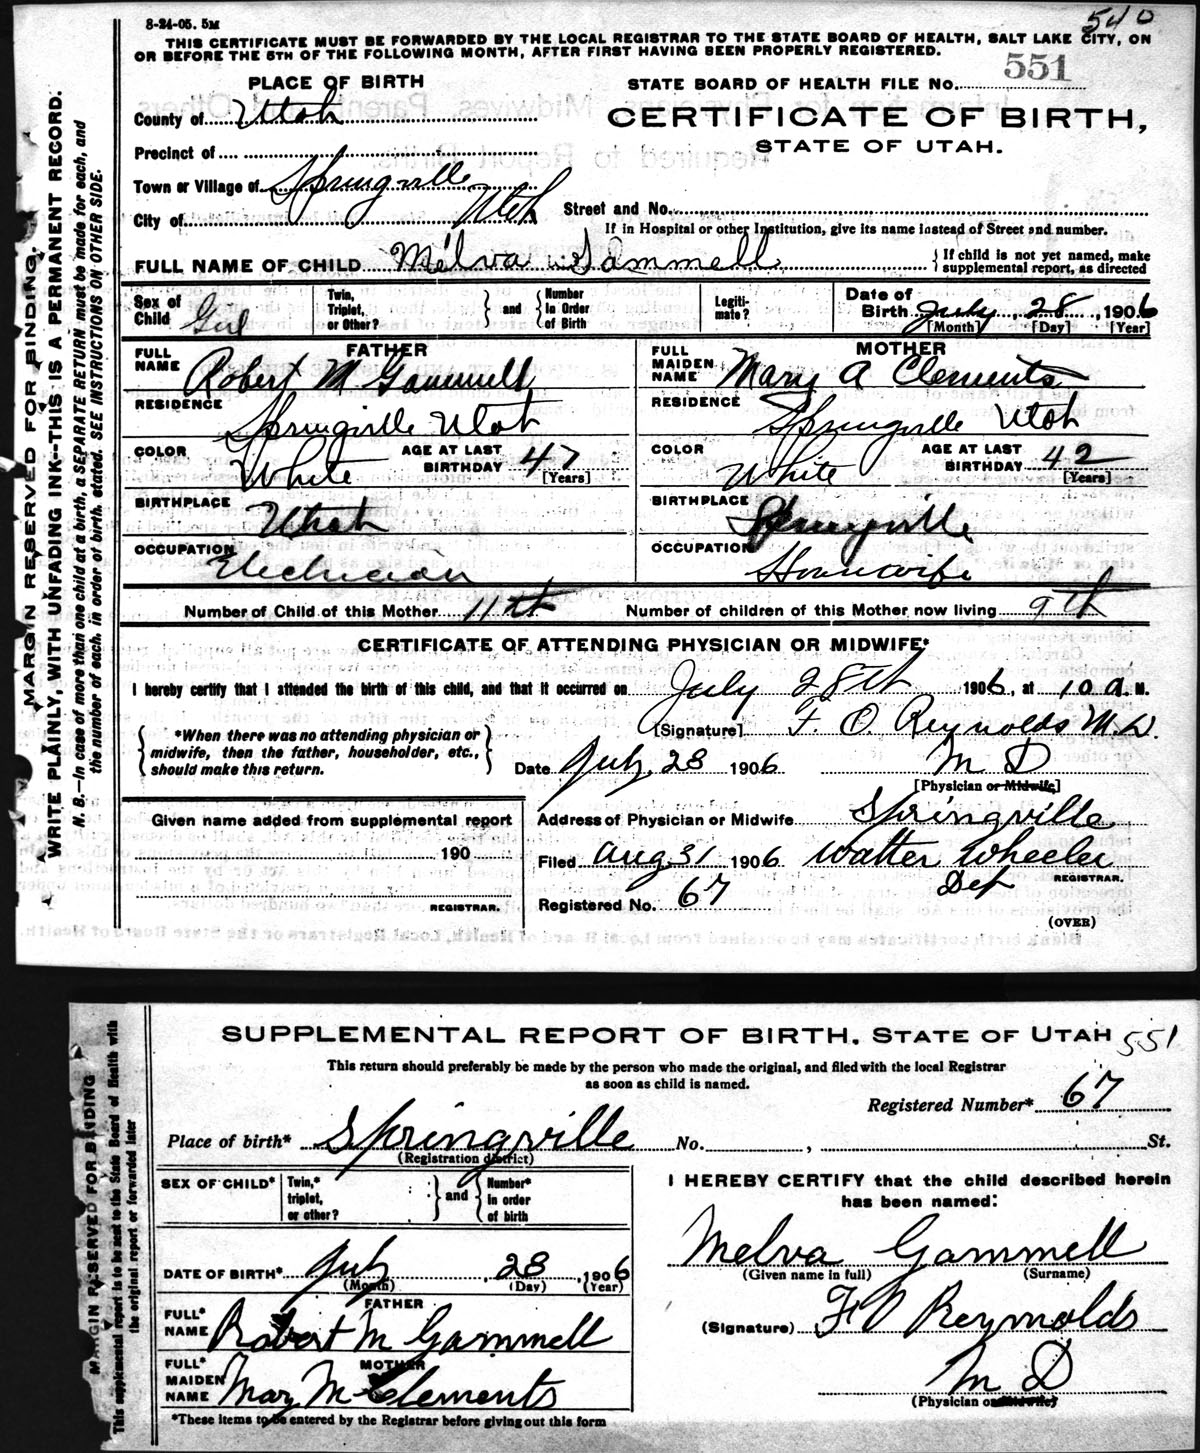 8-24-05. 5M
540
THIS CERTIFICATE MUST BE FORWARDED BY THE LOCAL REGISTRAR TO THE STATE BOARD OF HEALTH, SALT LAKE CITY, ON
OR BEFORE THE 5TH OF THE FOLLOWING MONTH, AFTER FIRST HAVING BEEN PROPERLY REGISTERED.
MARGIN RESERVED FOR BINDING.
WRITE PLAINLY, WITH UNFADING INK--THIS IS A PERMANENT RECORD.
N. B.—In case of more than one child at a birth, a SEPARATE RETURN must be made for each, and
the number of each, in order of birth, stated. SEE INSTRUCTIONS ON OTHER SIDE.
PLACE OF BIRTH
STATE BOARD OF HEALTH FILE No. 551
County of Utah
CERTIFICATE OF BIRTH,
STATE OF UTAH.
Precinct of
Town or Village of Springville
City of Utah
Street and No.
If in Hospital or other Institution, give its name instead of Street and number.
FULL NAME OF CHILD Melva Gammell
If child is not yet named, make
supplemental report, as directed
Sex of Child Girl
Twin, Triplet, or Other?
and
Number In Order of Birth
Legiti-mate?
Date of Birth July, 28, 1906
[Month] [Day] [Year]
FATHER
MOTHER
FULL NAME Robert M Gammell
FULL MAIDEN NAME Mary A Clements
RESIDENCE Springville Utah
RESIDENCE Springville Utah
COLOR White AGE AT LAST BIRTHDAY 47 [Years]
COLOR White AGE AT LAST BIRTHDAY 42 [Years]
BIRTHPLACE Utah
BIRTHPLACE Springville
OCCUPATION Electrician
OCCUPATION Housewife
Number of Child of this Mother 11th
Number of children of this Mother now living 9th
CERTIFICATE OF ATTENDING PHYSICIAN OR MIDWIFE*
I hereby certify that I attended the birth of this child, and that it occurred on July 28th 1906, at 10 a. M.
*When there was no attending physician or
midwife, then the father, householder, etc.,
should make this return.
[Signature] F. O. Reynolds M.D.
Date July 28 1906 M D
[Physician or Midwife]
Given name added from supplemental report
190
REGISTRAR.
Address of Physician or Midwife Springville
Filed Aug 31 1906 Walter Wheeler
Dep REGISTRAR.
Registered No. 67
(OVER)
SUPPLEMENTAL REPORT OF BIRTH, STATE OF UTAH 551
MARGIN RESERVED FOR BINDING
This supplemental report is to be sent to the State Board of Health with
the original report or forwarded later
This return should preferably be made by the person who made the original, and filed with the local Registrar
as soon as child is named.
Registered Number* 67
Place of birth* Springville No. , St.
(Registration district)
SEX OF CHILD*
Twin,* triplet, or other?
and
Number* in order of birth
I HEREBY CERTIFY that the child described herein
has been named:
Melva Gammell
(Given name in full) (Surname)
DATE OF BIRTH* July, 28, 1906
(Month) (Day) (Year)
FATHER
FULL* NAME Robert M Gammell
(Signature) F O Reynolds
MOTHER
FULL* MAIDEN NAME Mary M Clements
M D
(Physician or Midwife)
*These items to be entered by the Registrar before giving out this form